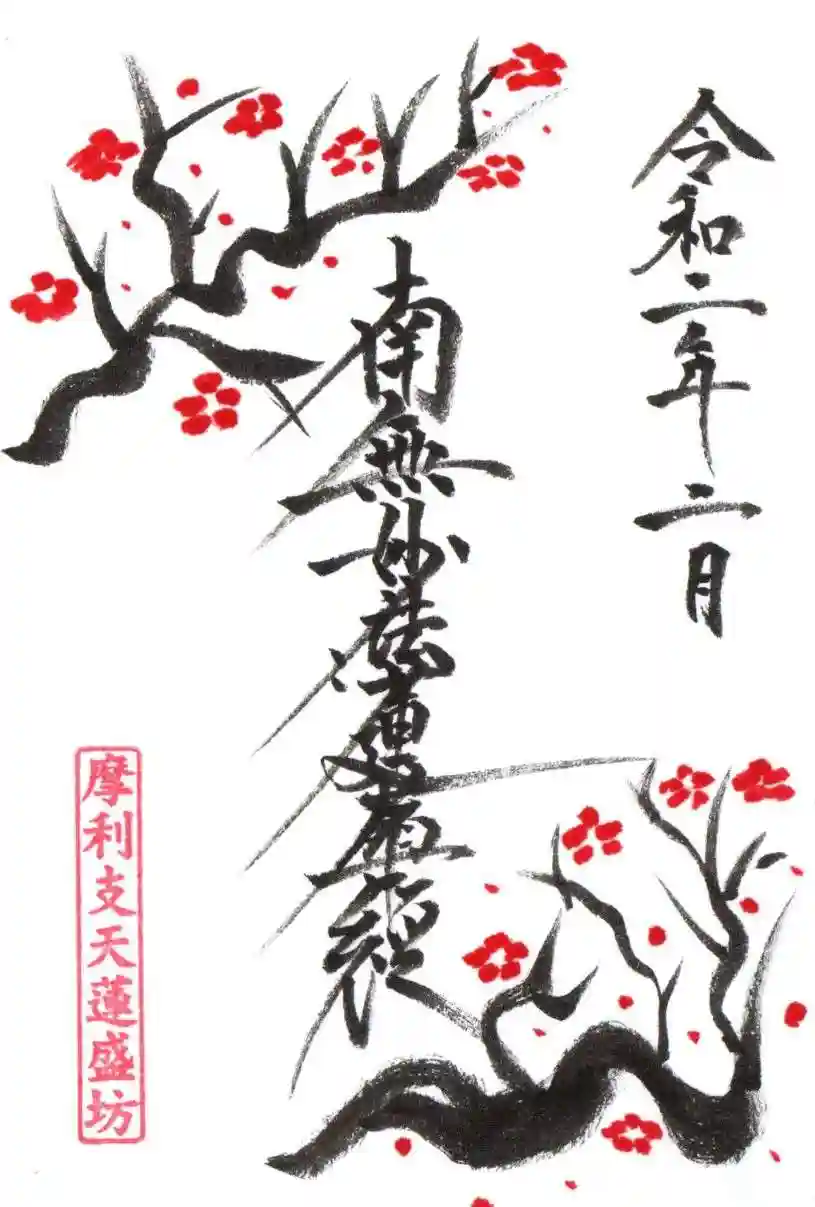 令和二年二月
南無妙法蓮華経
摩利支天蓮盛坊